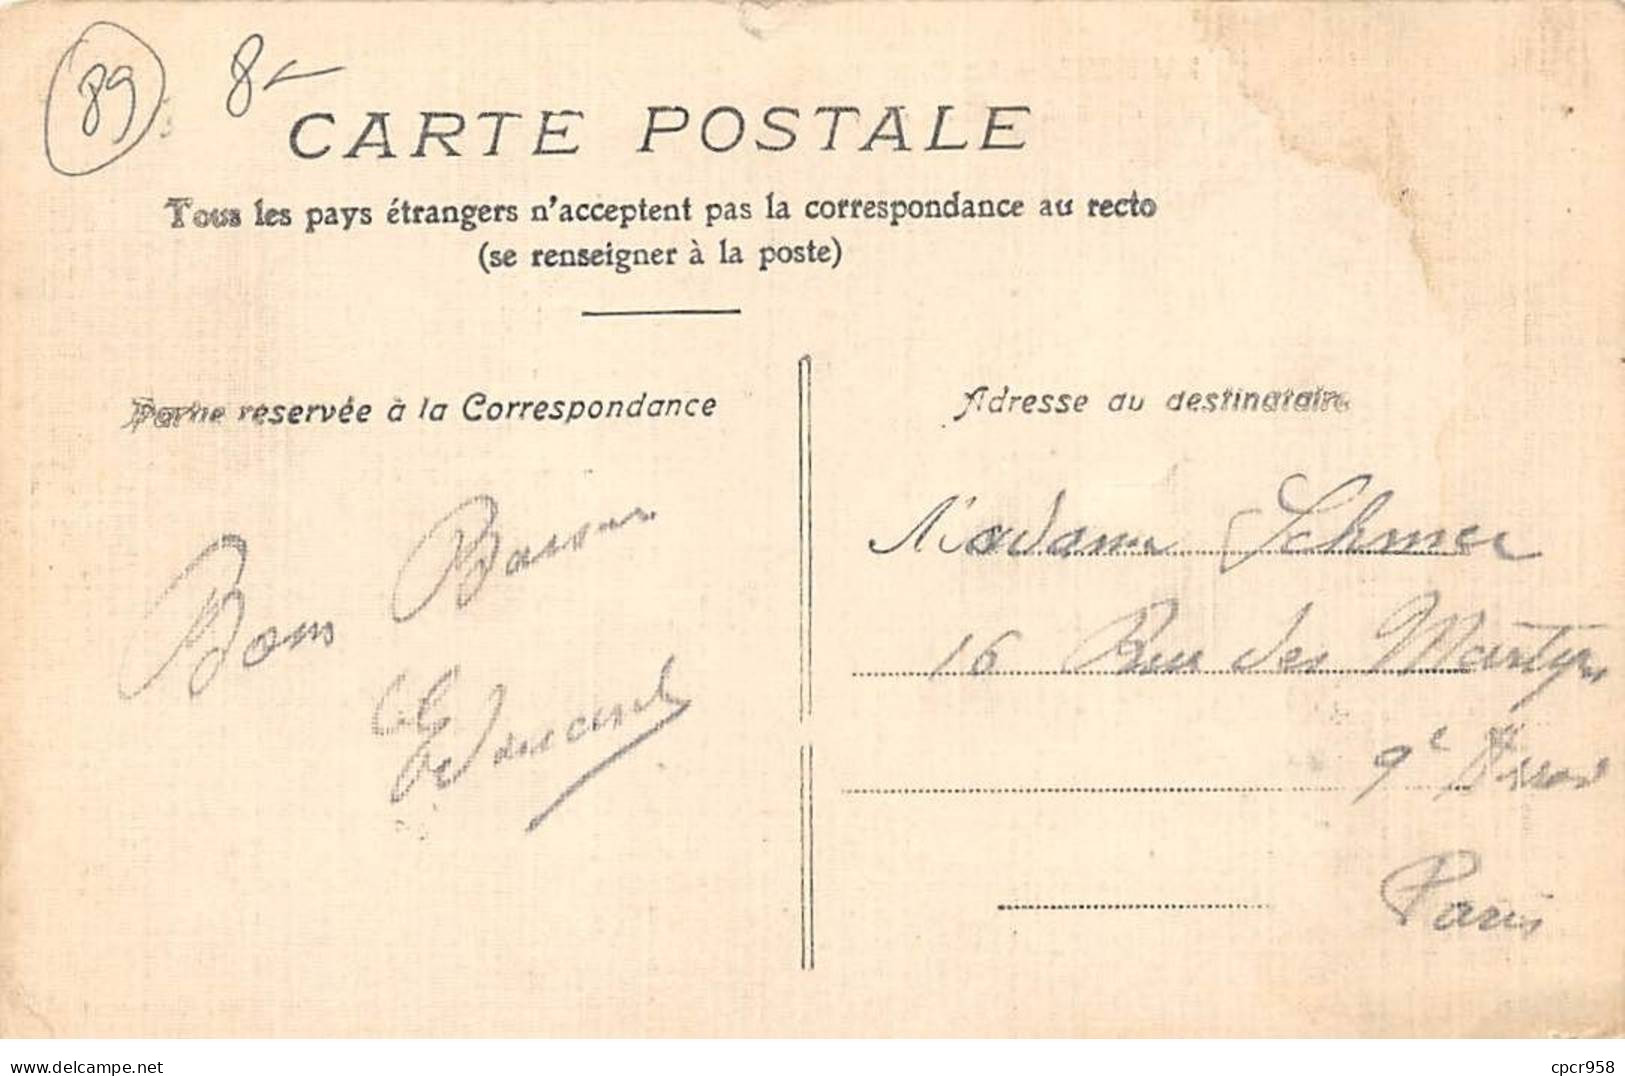 89
8
CARTE POSTALE
Tous les pays étrangers n'acceptent pas la correspondance au recto
(se renseigner à la poste)
Partie reservée à la Correspondance
Adresse au destinataire
Bons Baisers
Madame
16 Rue des Martyrs
9e
Paris
delcampe.net
cpcr958